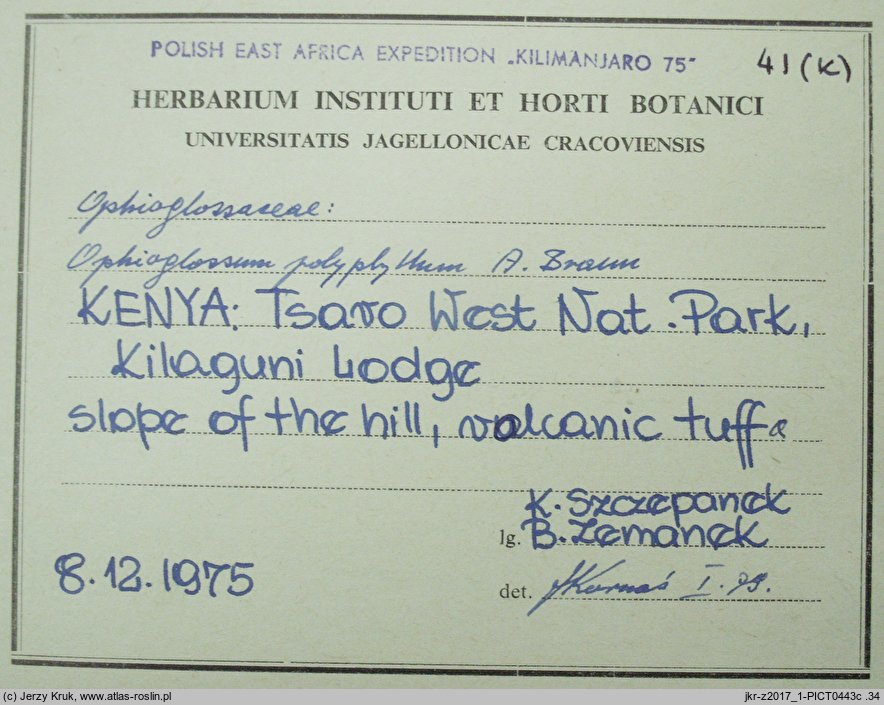 POLISH EAST AFRICA EXPEDITION „KILIMANJARO 75"
41 (K)
HERBARIUM INSTITUTI ET HORTI BOTANICI
UNIVERSITATIS JAGELLONICAE CRACOVIENSIS
Ophioglossaceae:
Ophioglossum polyphyllum A. Braun
KENYA: Tsavo West Nat. Park,
Kilaguni Lodge
slope of the hill, volcanic tuff
K. Szczepanek
lg. B. Zemanek
8.12.1975
det. J Kornaś I. 79.
(c) Jerzy Kruk, www.atlas-roslin.pl
jkr-z2017_1-PICT0443c .34